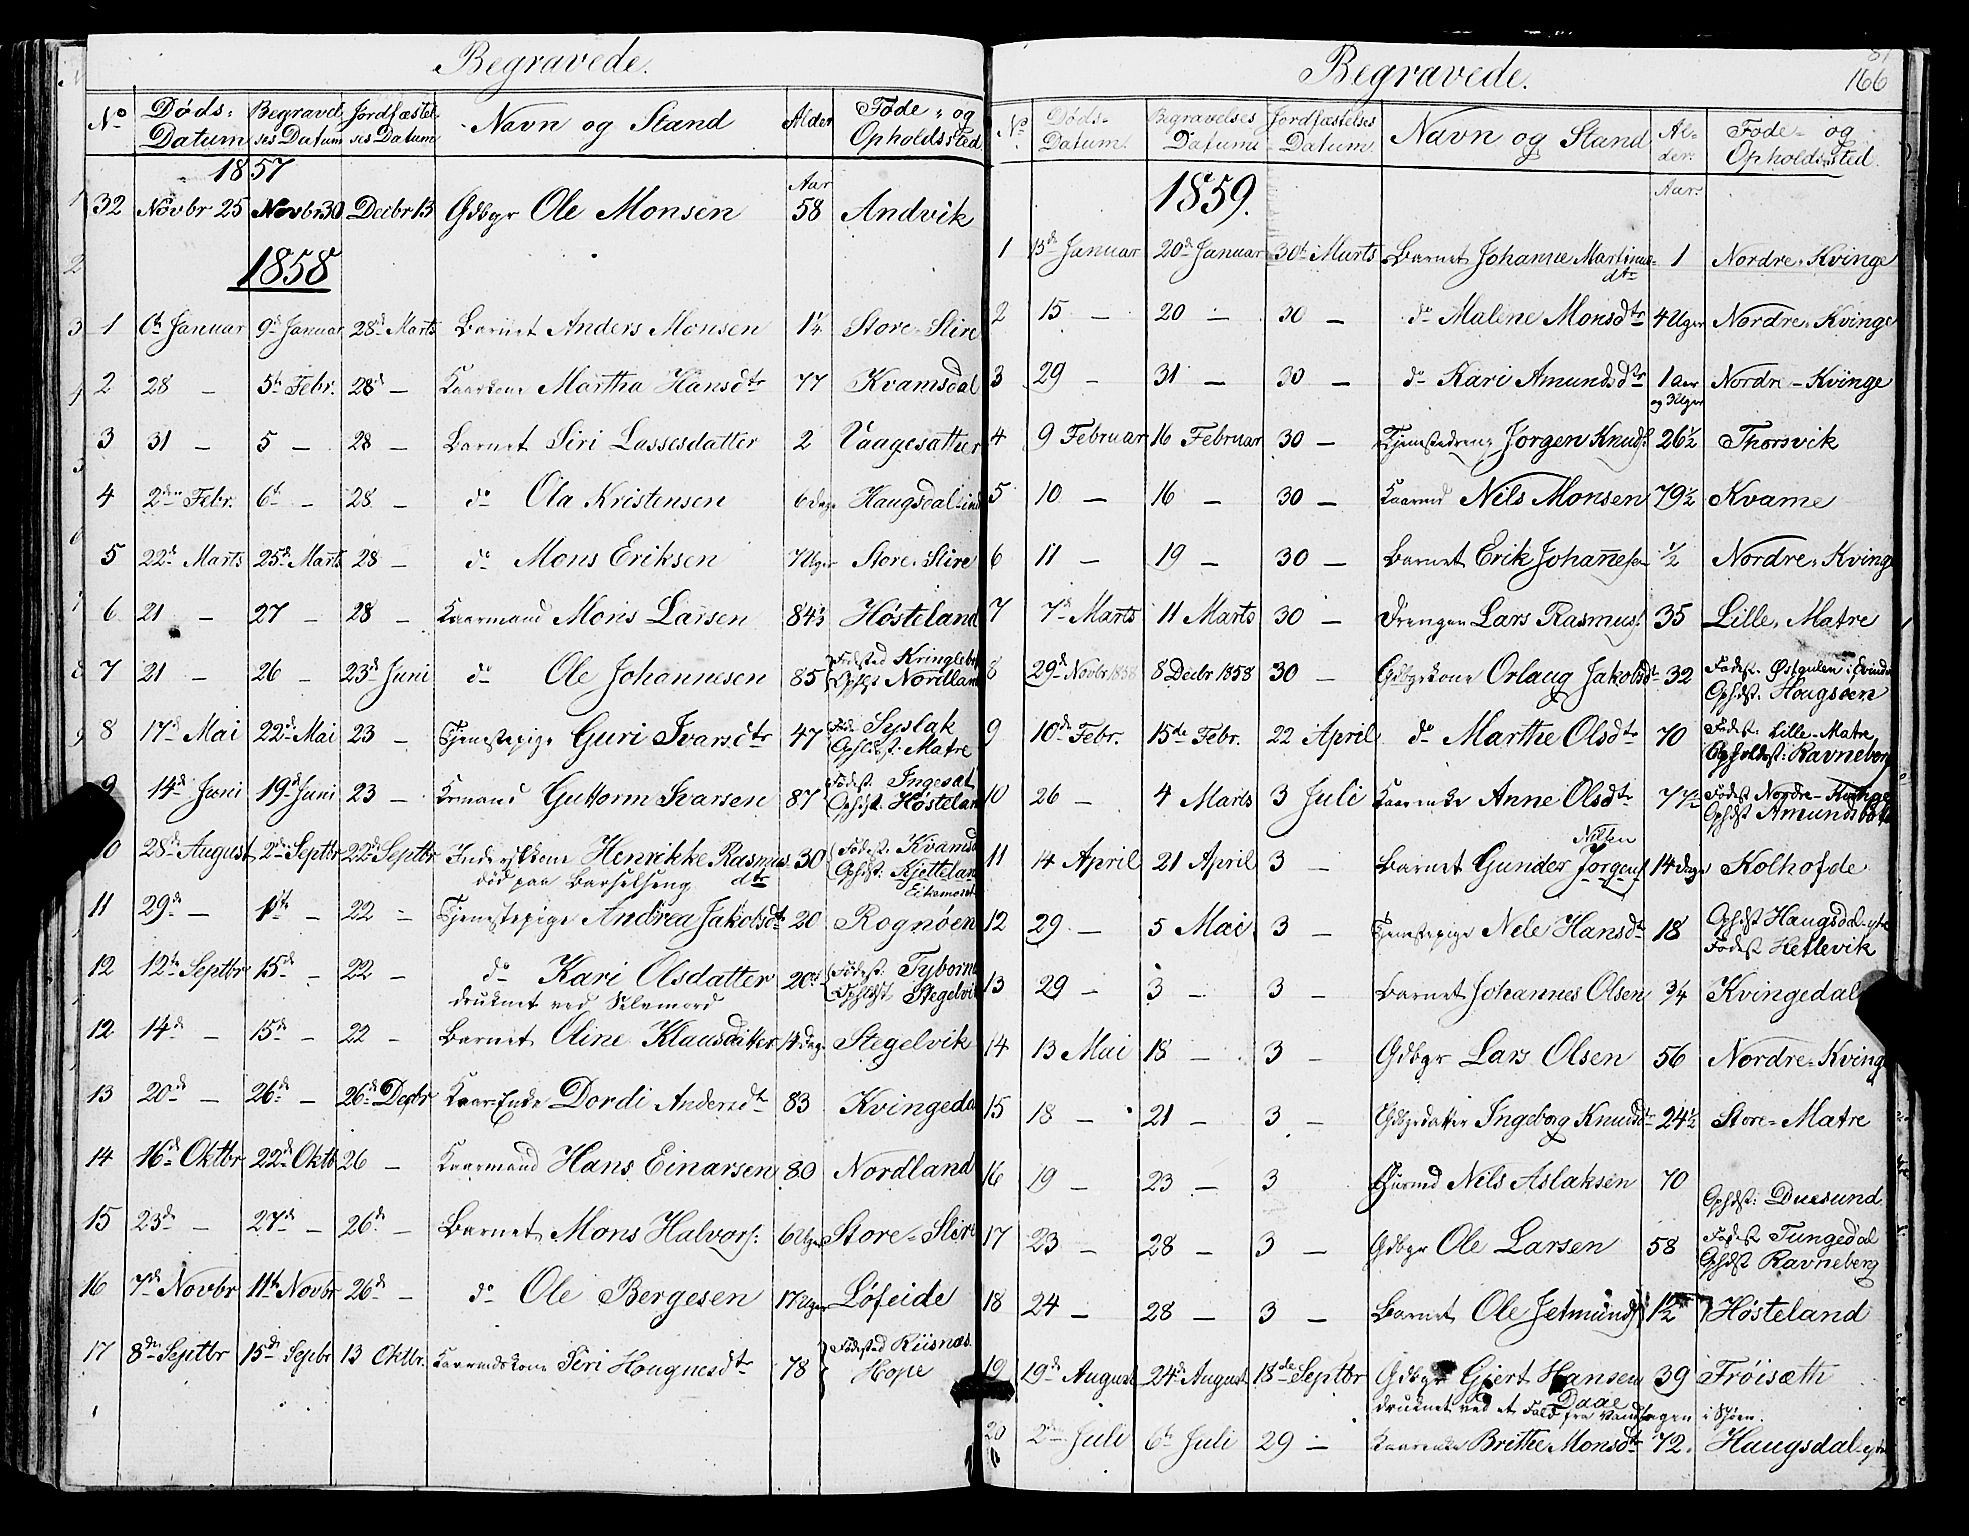 Begravede.
No Døds- Datum Begravelses Datum Jordfæstelses Datum Navn og Stand Alder Føde- og Opholdssted
1857
Aar
32 Novbr 25 Novbr 30 Decbr 13 Gdbgr Ole Monsen 58 Andvik
1858
1 6te Januar 9de Januar 28de Marts Barnet Anders Monsen 1¼ Store-Stire
2 28 - 5te Febr. 28de - Kaarkone Martha Hansdtr 77 Kvamsdal
3 31 - 5 - 28 - Barnet Siri Lassesdatter 2 Vaagesæther
4 2den Febr. 6te - 28 - do Ola Kristensen 6 Dage Haugsdal-ind
5 22de Marts 25de Marts 28 - do Mons Eriksen 7 Uger Store-Stire
6 21 - 27 - 28 - Kaarmand Mons Larsen 84 Høsteland
7 21 - 26 - 23de Juni do Ole Johannesen 85 Fødsted Kringleb
Nordland
8 17de Mai 22de Mai 23 - Tjenestepige Guri Ivarsdtr 47 Syslak
Ophdst: Matre
9 14de Juni 19de Juni 23 - Krmand Guttorm Ivarsen 87 Fødest. Ingesæt
Ophdst. Høsteland
10 28de August 2den Septbr 22de Septbr Henrikke Rasmusdtr 30 Fødest: Kvamsd
død paa Barselseng Ophdst: Kjetteland
Eikemoret
11 29de - 1ste - 22 - Tjenestepige Andrea Jakobsdtr 20 Rognøen
12 12te Septbr 15de - 22 - do Kari Olsdatter 20 Fødest: Tyborn
druknet ved Selvmord Ophdst Stegelvik
12 14de - 15de - 22 - Barnet Oline Klausdatter 14 Dage Stegelvik
13 20de - 26de - 26de Decbr Kaar-Enke Dordi Andersdtr 83 Kvingedal
14 16de Oktbr 22de Oktb 26 - Kaarmand Hans Einarsen 80 Nordland
15 23de - 27de - 26de - Barnet Mons Halvors: 6 Uger Store-Stire
16 7de Novbr 11te Novbr 26de - do Ole Bergesen 17 Uger Løfeide
17 8de Septbr 15de Sepbr 13 Oktbr. Kaarmdskone Siri Hougnesdtr 78 Fødested Riisnæs.
Hope
Begravede.
166
No. Døds- Datum. Begravelses Datum Jordfæstelses Datum Navn og Stand Al- der. Føde- og Opholdssted.
Aar.
1859.
1 13de Januar 20de Januar 30te Marts Barnet Johanne Martinusdtr 1 Nordre-Kvinge
2 15 - 20 - 30 - do Malene Monsdtr 4 Uger Nordre-Kvinge
3 29 - 31 - 30 - do Kari Amundsdtr 1 aar og 3 Uger Nordre-Kvinge
4 9 Februar 16 Februar 30 - Tjenestedreng Jorgen Knuds 26½ Thorsvik
5 10 - 16 - 30 - Kaarmd Nils Monsen 79½ Kvame
6 11 - 19 - 30 - Barnet Erik Johannesen ½ Nordre-Kvinge
7 7de Marts 11 Marts 30 - Drengen Lars Rasmus: 35 Lille-Matre
8 29de Novbr 1858 8 Decbr 1858 30 - Gdbgrkone Orlaug Jakobsdtr 32 Fødest. Østgulen i Evindv
Ophdst. Hougsøen
9 10de Febr. 15de Febr. 22 April do Marthe Olsdtr 70 Fødest: Lille-Matre
Opholdst: Ravneberg
10 26 - 4 Marts 3 Juli Kaarenke Anne Olsdtr 77½ Fødest Nordre-Kvinge
Ophdst Amundsbotn
11 14 April 21 April 3 - Barnet Gunder Jorgens Nilsen 14 Dage Kolhofde
12 29 - 5 Mai 3 - Tjenestepige Nele Hansdtr 18 Ophdst Haugsdal-ytre
Fødest Hetlevik
13 29 - 3 - 3 - Barnet Johannes Olsen 3/4 Kvingedal
14 13 Mai 18 - 3 - Gdbgr Lars Olsen 56 Nordre-Kvinge
15 18 - 21 - 3 - Gdbgrdatter Ingeborg Knudsdtr 24½ Store-Matre
16 19 - 23 - 3 Nils Aslaksen 70
Ophdst: Duesund
17 23 - 28 - 3 - Gdbgr Ole Larsen 58 Fødest Tungedal
Ophdst Ravneberg
18 24 - 28 - 3 - Barnet Ole Jetmunds 1½ Høsteland
19 19de August 24de August 18de Septbr Gdbgr Gjert Hansen Daae 39 Frøisæth
druknet ved et Fald fra i Sjøen.
20 2den Juli 6te Juli 29 - Kaarenke Brithe Monsdtr 72. Haugsdal-ytre